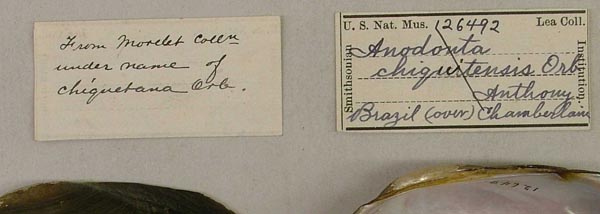 From Morelet Colln
under name of
chiquetana Orb.
U. S. Nat. Mus. 126492 Lea Coll.
Smithsonian Institution.
Anodonta
chiquitensis Orb
Anthony
Brazil (over) Chamberlain